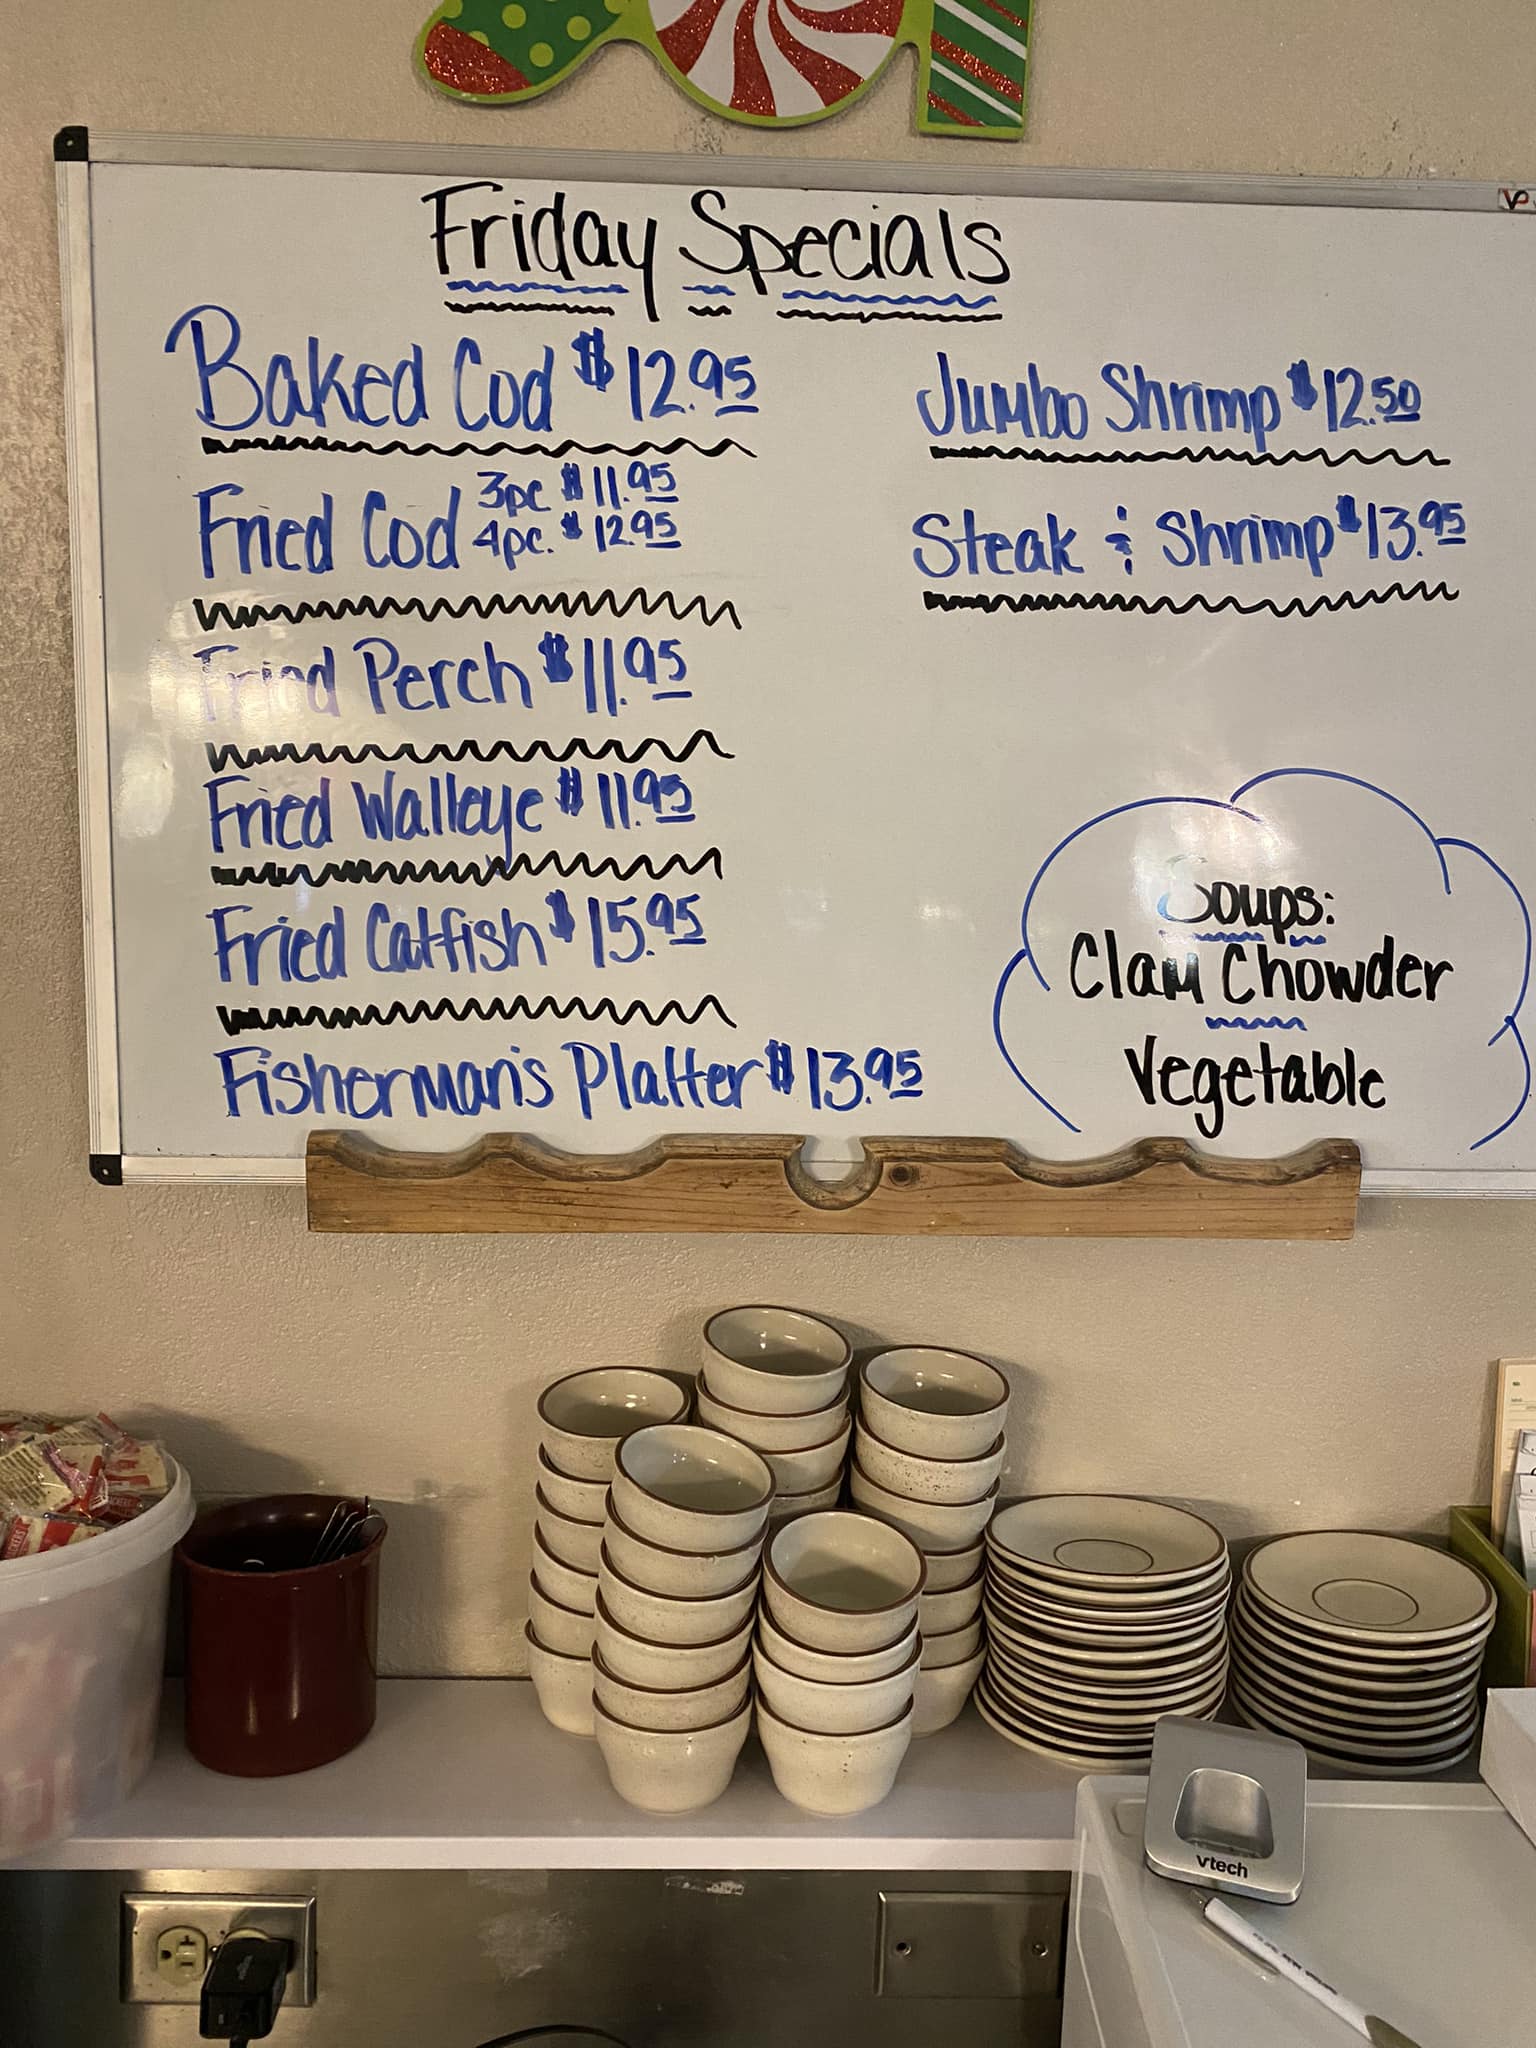 Friday Specials
Baked Cod $12.95
Fried Cod 3pc $11.95
4pc. $12.95
Fried Perch $11.95
Fried Walleye $11.95
Fried Catfish $15.95
Fisherman's Platter $13.95
Jumbo Shrimp $12.50
Steak & Shrimp $13.95
Soups:
Clam Chowder
Vegetable
vtech